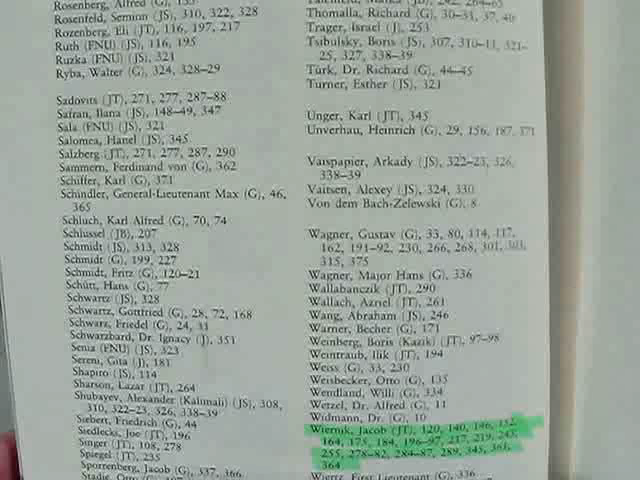 Rosenberg, Alfred (G), 135
Rosenfeld, Semion (JS), 310, 322, 328
Rozenberg, Eli (JT), 116, 197, 217
Ruth (FNU) (JS), 116, 195
Ruzka (FNU) (JS), 321
Ryba, Walter (G), 324, 328–29
Sadovits (JT), 271, 277, 287–88
Safran, Ilana (JS), 148–49, 347
Sala (FNU) (JS), 321
Salomea, Hanel (JS), 345
Salzberg (JT), 271, 277, 287, 290
Sammern, Ferdinand von (G), 362
Schiffer, Karl (G), 371
Schindler, General-Lieutenant Max (G), 46,
365
Schluch, Karl Alfred (G), 70, 74
Schlussel (JB), 207
Schmidt (JS), 313, 328
Schmidt (G), 199, 227
Schmidt, Fritz (G), 120–21
Schütt, Hans (G), 77
Schwartz (JS), 328
Schwartz, Gottfried (G), 28, 72, 168
Schwarz, Friedel (G), 24, 31
Schwarzbard, Dr. Ignacy (J), 351
Senia (FNU) (JS), 323
Sereni, Gita (J), 181
Shapiro (JS), 114
Sharson, Lazar (JT), 264
Shubayev, Alexander (Kalimali) (JS), 308,
310, 322–23, 326, 338–39
Siebert, Friedrich (G), 44
Siedlecks, Joe (JT), 196
Singer (JT), 108, 278
Spiegel (JT), 235
Sporrenberg, Jacob (G), 337, 366
Stadie, Otto (G),
264–65
Thomalla, Richard (G), 30–31, 37, 40
Trager, Israel (J), 253
Tsibulsky, Boris (JS), 307, 310–13, 321–
25, 327, 338–39
Türk, Dr. Richard (G), 44–45
Turner, Esther (JS), 321
Unger, Karl (JT), 345
Unverhau, Heinrich (G), 29, 156, 187, 371
Vaispapier, Arkady (JS), 322–23, 326,
338–39
Vaitsen, Alexey (JS), 324, 330
Von dem Bach-Zelewski (G), 8
Wagner, Gustav (G), 33, 80, 114, 117,
162, 191–92, 230, 266, 268, 301, 303,
315, 375
Wagner, Major Hans (G), 336
Wallabanczik (JT), 290
Wallach, Azriel (JT), 261
Wang, Abraham (JS), 246
Warner, Becher (G), 171
Weinberg, Boris (Kazik) (JT), 97–98
Weintraub, Ilik (JT), 194
Weiss (G), 33, 230
Weisbecker, Otto (G), 135
Wendland, Willi (G), 334
Wetzel, Dr. Alfred (G), 11
Widmann, Dr. (G), 10
Wiernik, Jacob (JT), 120, 140, 146, 152,
164, 175, 184, 196–97, 217, 219, 243,
255, 278–82, 284–87, 289, 345, 363,
364
Wiertz, First Lieutenant (G), 336